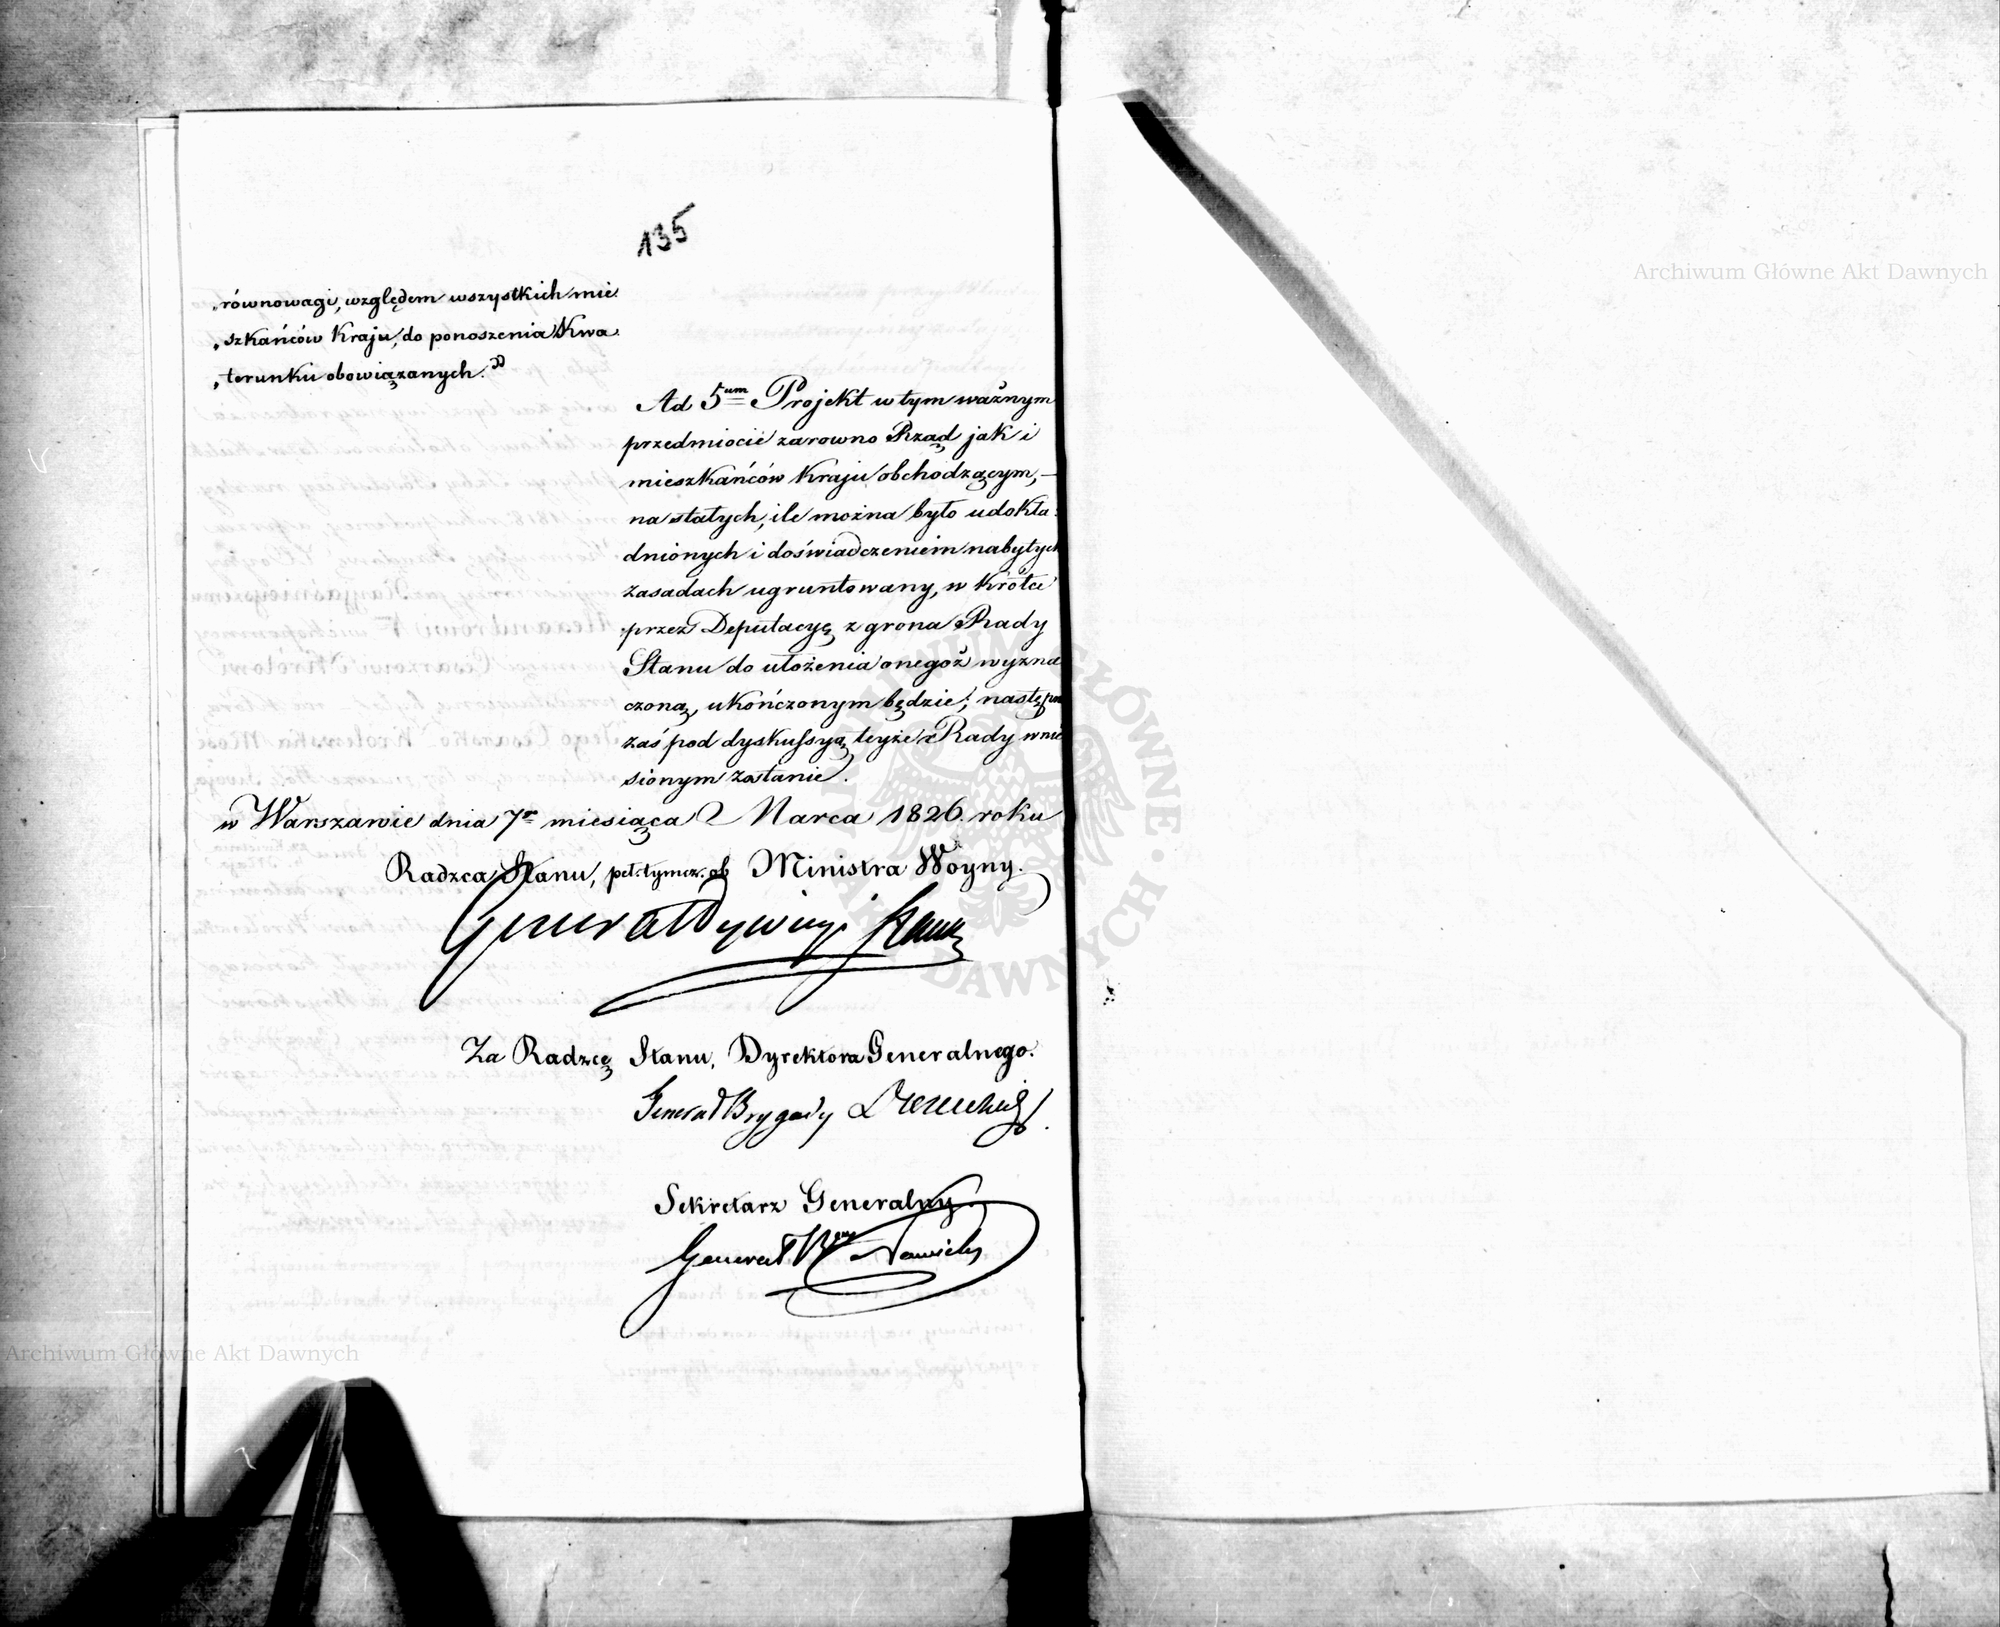 135
„równowagi, względem wszystkich mie
„szkańców Kraju, do ponoszenia Kwa
„terunku obowiązanych.”
Ad 5um Projekt w tym ważnym
przedmiocie zarowno Rząd jak i
mieszkańców Kraju obchodzącym, –
na stałych, ile można było udokła
dnionych i doświadczeniem nabytych
zasadach ugruntowany, w krótce
przez Deputacyę z grona Rady
Stanu do ułożenia onegoż wyzna
czoną, ukończonym będzie; następnie
zaś pod dyskussyą teyże Rady wnie
sionym zostanie.
w Warszawie dnia 7go miesiąca Marca 1826. roku
Radzca Stanu, peł. tymcz. ob Ministra Woyny.
Generał Dywizyi
Za Radzcę Stanu, Dyrektora Generalnego.
Generał Brygady
Sekretarz Generalny
Generał
Archiwum Główne Akt Dawnych
Archiwum Główne Akt Dawnych
ARCHIWUM GŁÓWNE AKT DAWNYCH